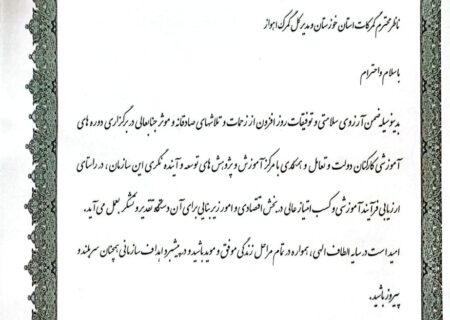 ناظر محترم گمرکات استان خوزستان و مدیر کل گمرک اهواز
با سلام و احترام
بدینوسیله ضمن آرزوی سلامتی و توفیقات روز افزون از زحمات و تلاشهای صادقانه و موثر جنابعالی در برگزاری دوره های
آموزشی کارکنان دولت و تعامل و همکاری با مرکز آموزش و پژوهش های توسعه و آینده نگری این سازمان، در راستای
ارزیابی فرآیند آموزشی و کسب امتیاز عالی در بخش اقتصادی و امور زیربنایی برای آن دستگاه تقدیر و تشکر بعمل می آید.
امید است در سایه الطاف الهی، همواره در تمام مراحل زندگی موفق و موید باشید و در پیشبرد اهداف سازمانی همچنان سربلند و
پیروز باشید.